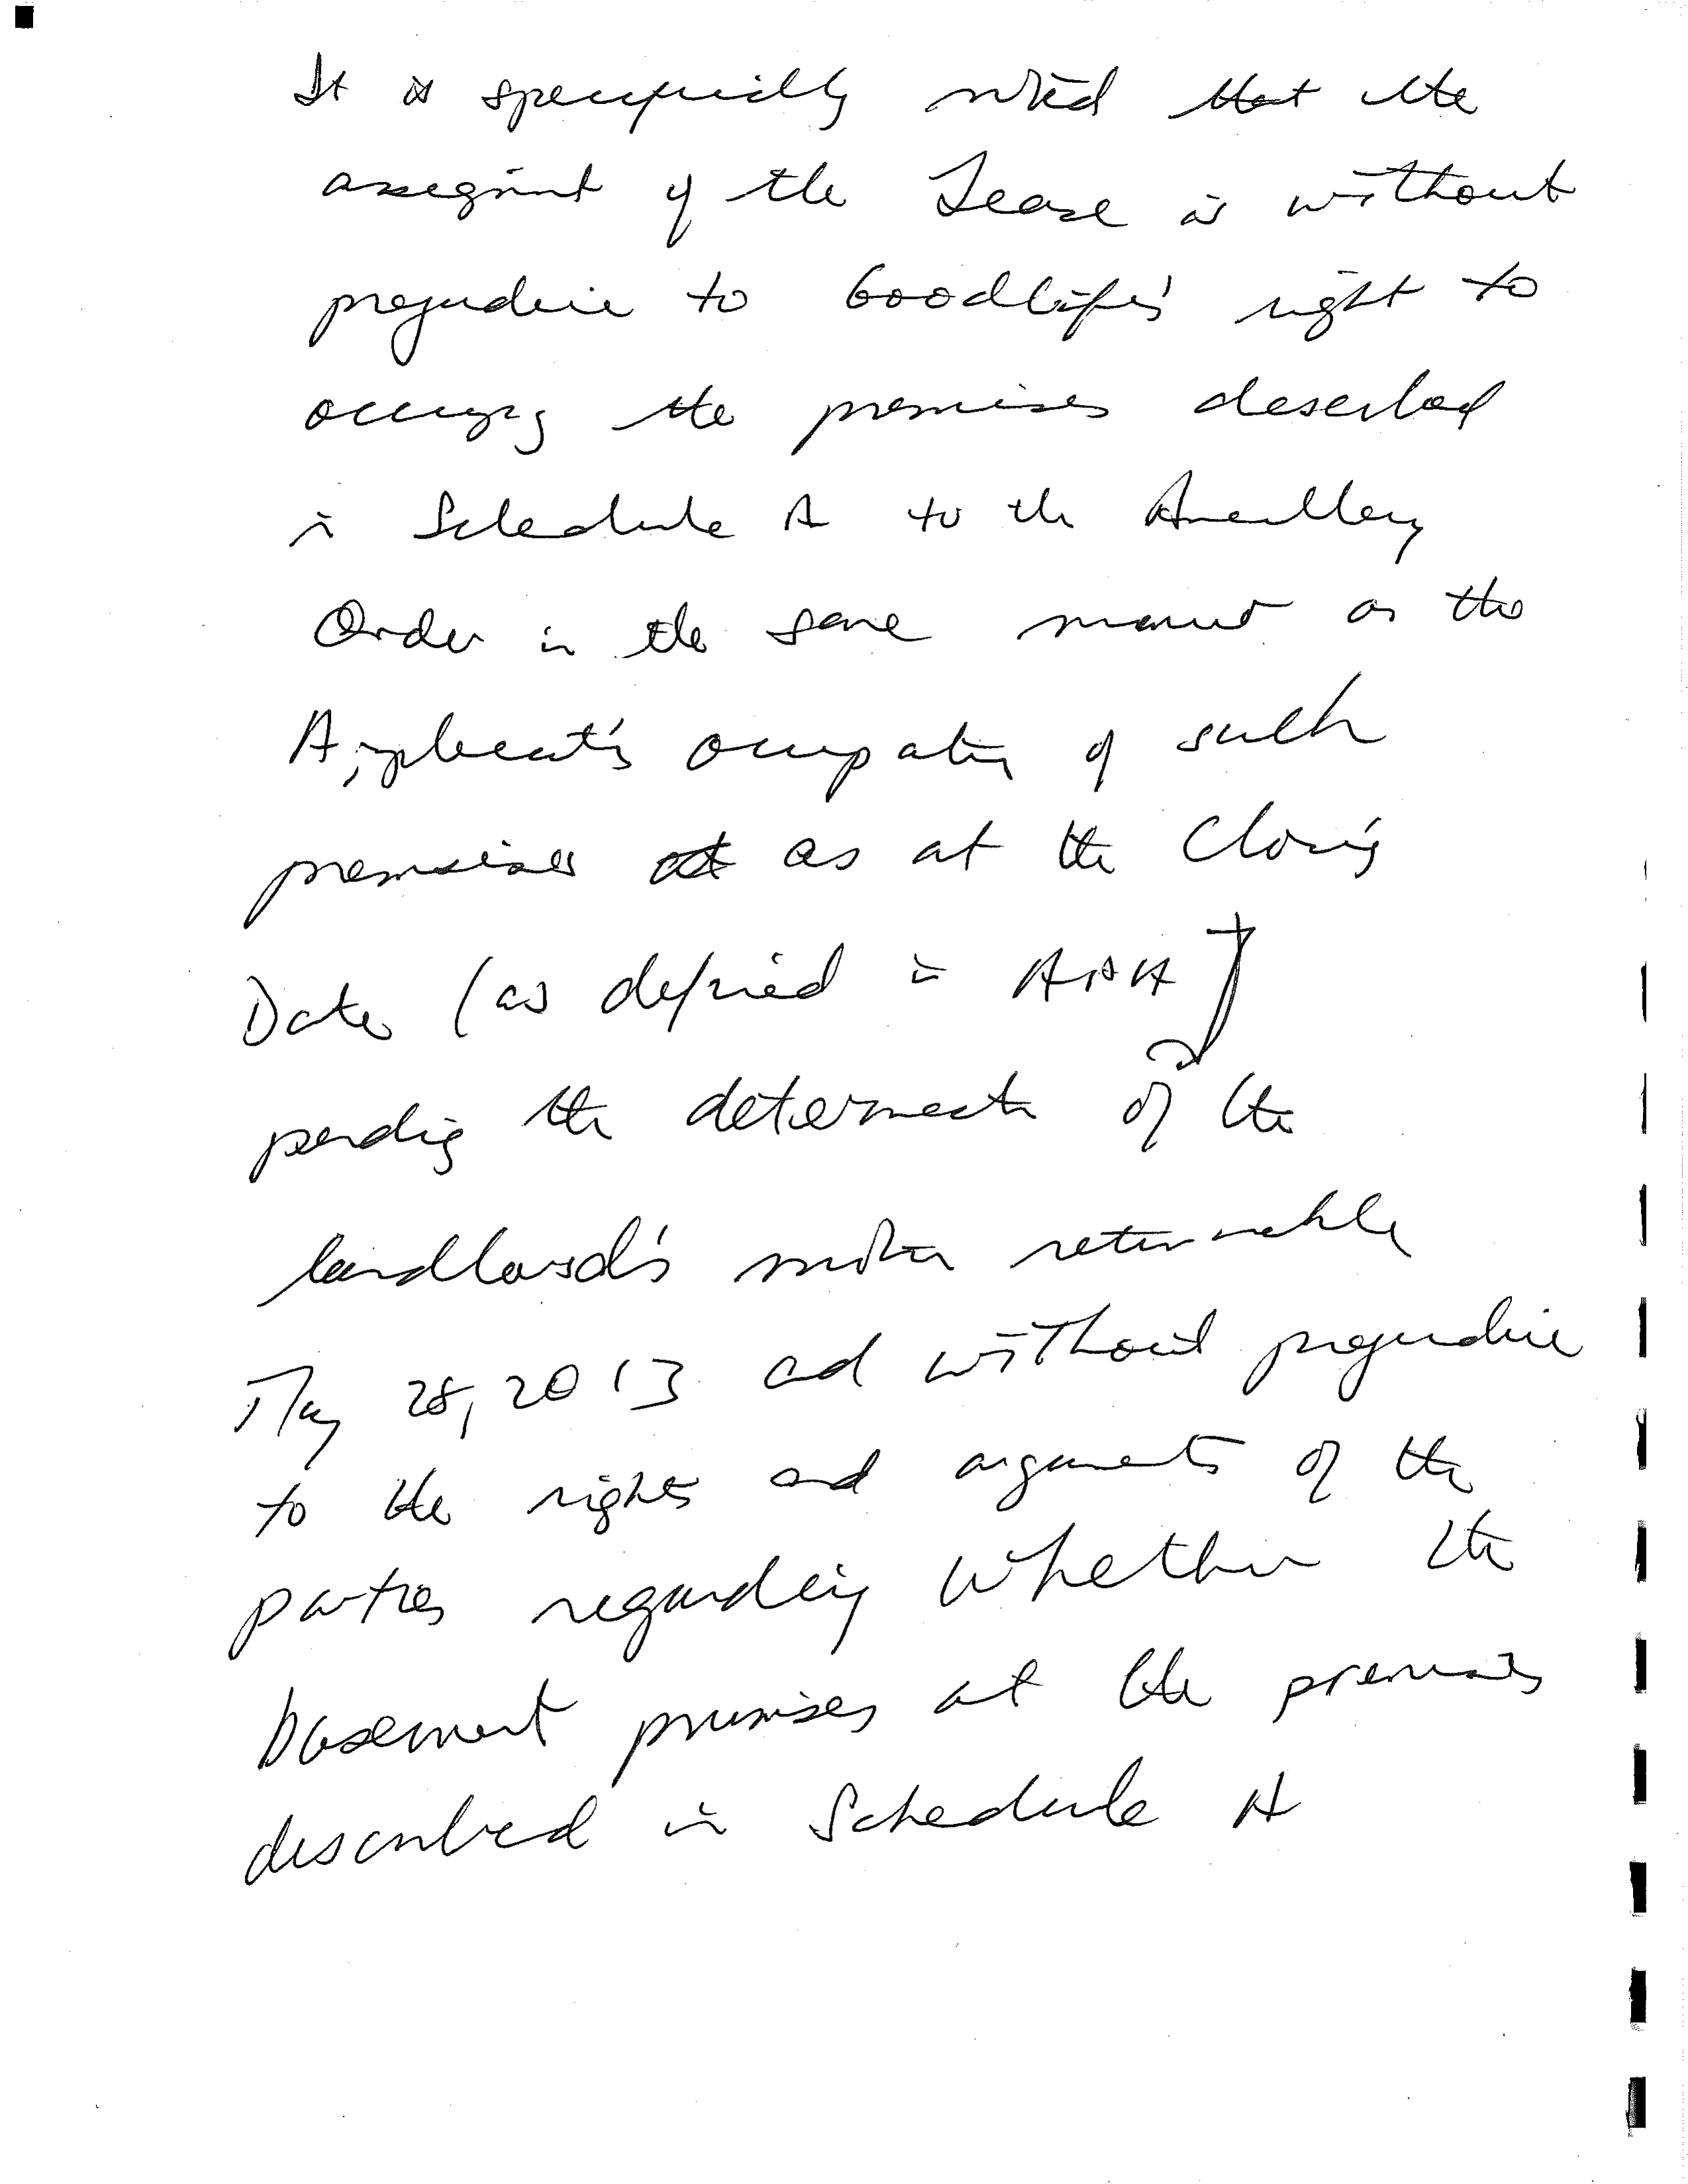 It is specifically noted that the
assignment of the Lease is without
prejudice to Goodlife's right to
occupy the premises described
in Schedule A to the Ancillary
Order in the same manner as the
Applicant's occupation of such
premises at as at the Closing
Date (as defined in APA)
pending the determination of the
landlord's motion returnable
May 28, 2013 and without prejudice
to the rights and arguments of the
parties regarding whether the
basement premises at the premises
described in Schedule A